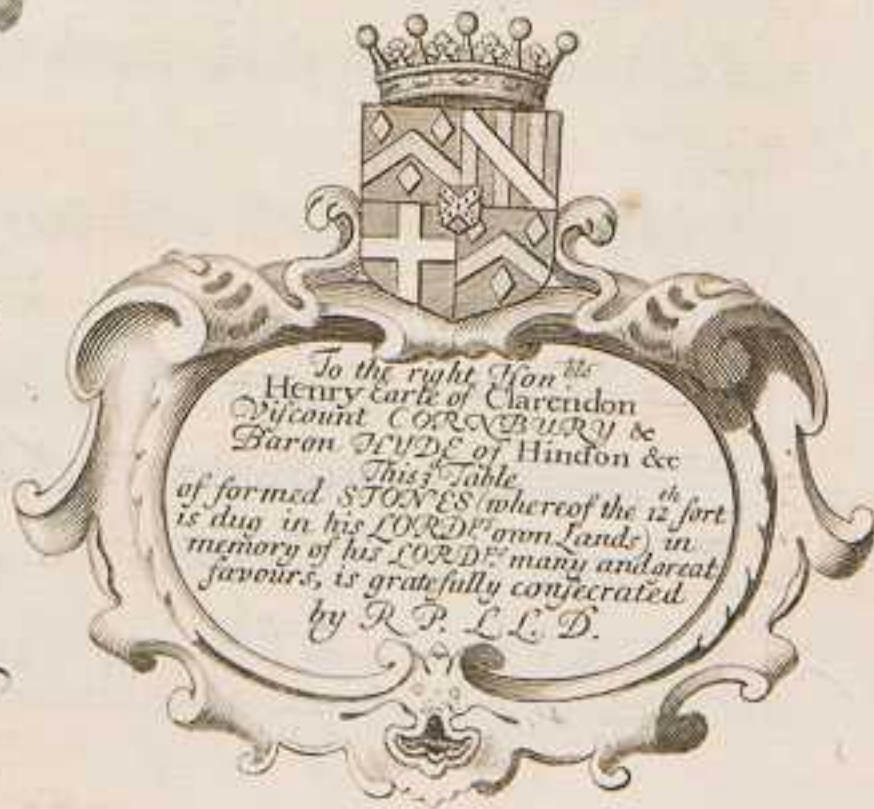 To the right Hon^ble
Henry Earle of Clarendon
Viſcount CORNBURY &
Baron HYDE of Hindon &c
This Table
of formed STONES (whereof the 12^th ſort
is dug in his LORD^ps own Lands) in
memory of his LORD^ps many and great
favours, is gratefully conſecrated
by R. P. L L. D.